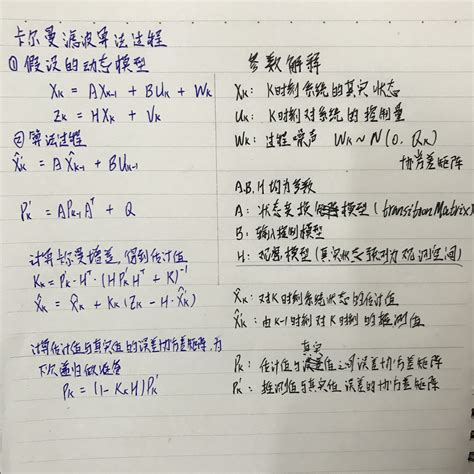 卡尔曼滤波算法过程
① 假设的动态模型
Xk = AXk-1 + BUk + Wk
Zk = HXk + Vk
② 算法过程
X̂k' = AX̂k-1 + BUk-1
Pk' = APk-1Aᵀ + Q
计算卡尔曼增益,得到估计值
Kk = Pk'·Hᵀ·(HPk'Hᵀ + R)⁻¹
X̂k = X̂k + Kk(Zk - HX̂k')
计算估计值与真实值的误差协方差矩阵,为
下次递归做准备
Pk = (1-KkH)Pk'
参数解释
Xk: K时刻系统的真实状态
Uk: K时刻对系统的控制量
Wk: 过程噪声 Wk~N(0, Qk)
协方差矩阵
A,B,H 均为参数
A: 状态变换矩阵模型(transition Matrix)
B: 输入控制模型
H: 观察模型(真实状态映射为观测空间)
X̂k: 对K时刻系统状态的估计值
X̂k': 由k-1时刻对K时刻的推测值
真实
Pk: 估计值与值之间误差协方差矩阵
Pk': 推测值与真实值误差的协方差矩阵